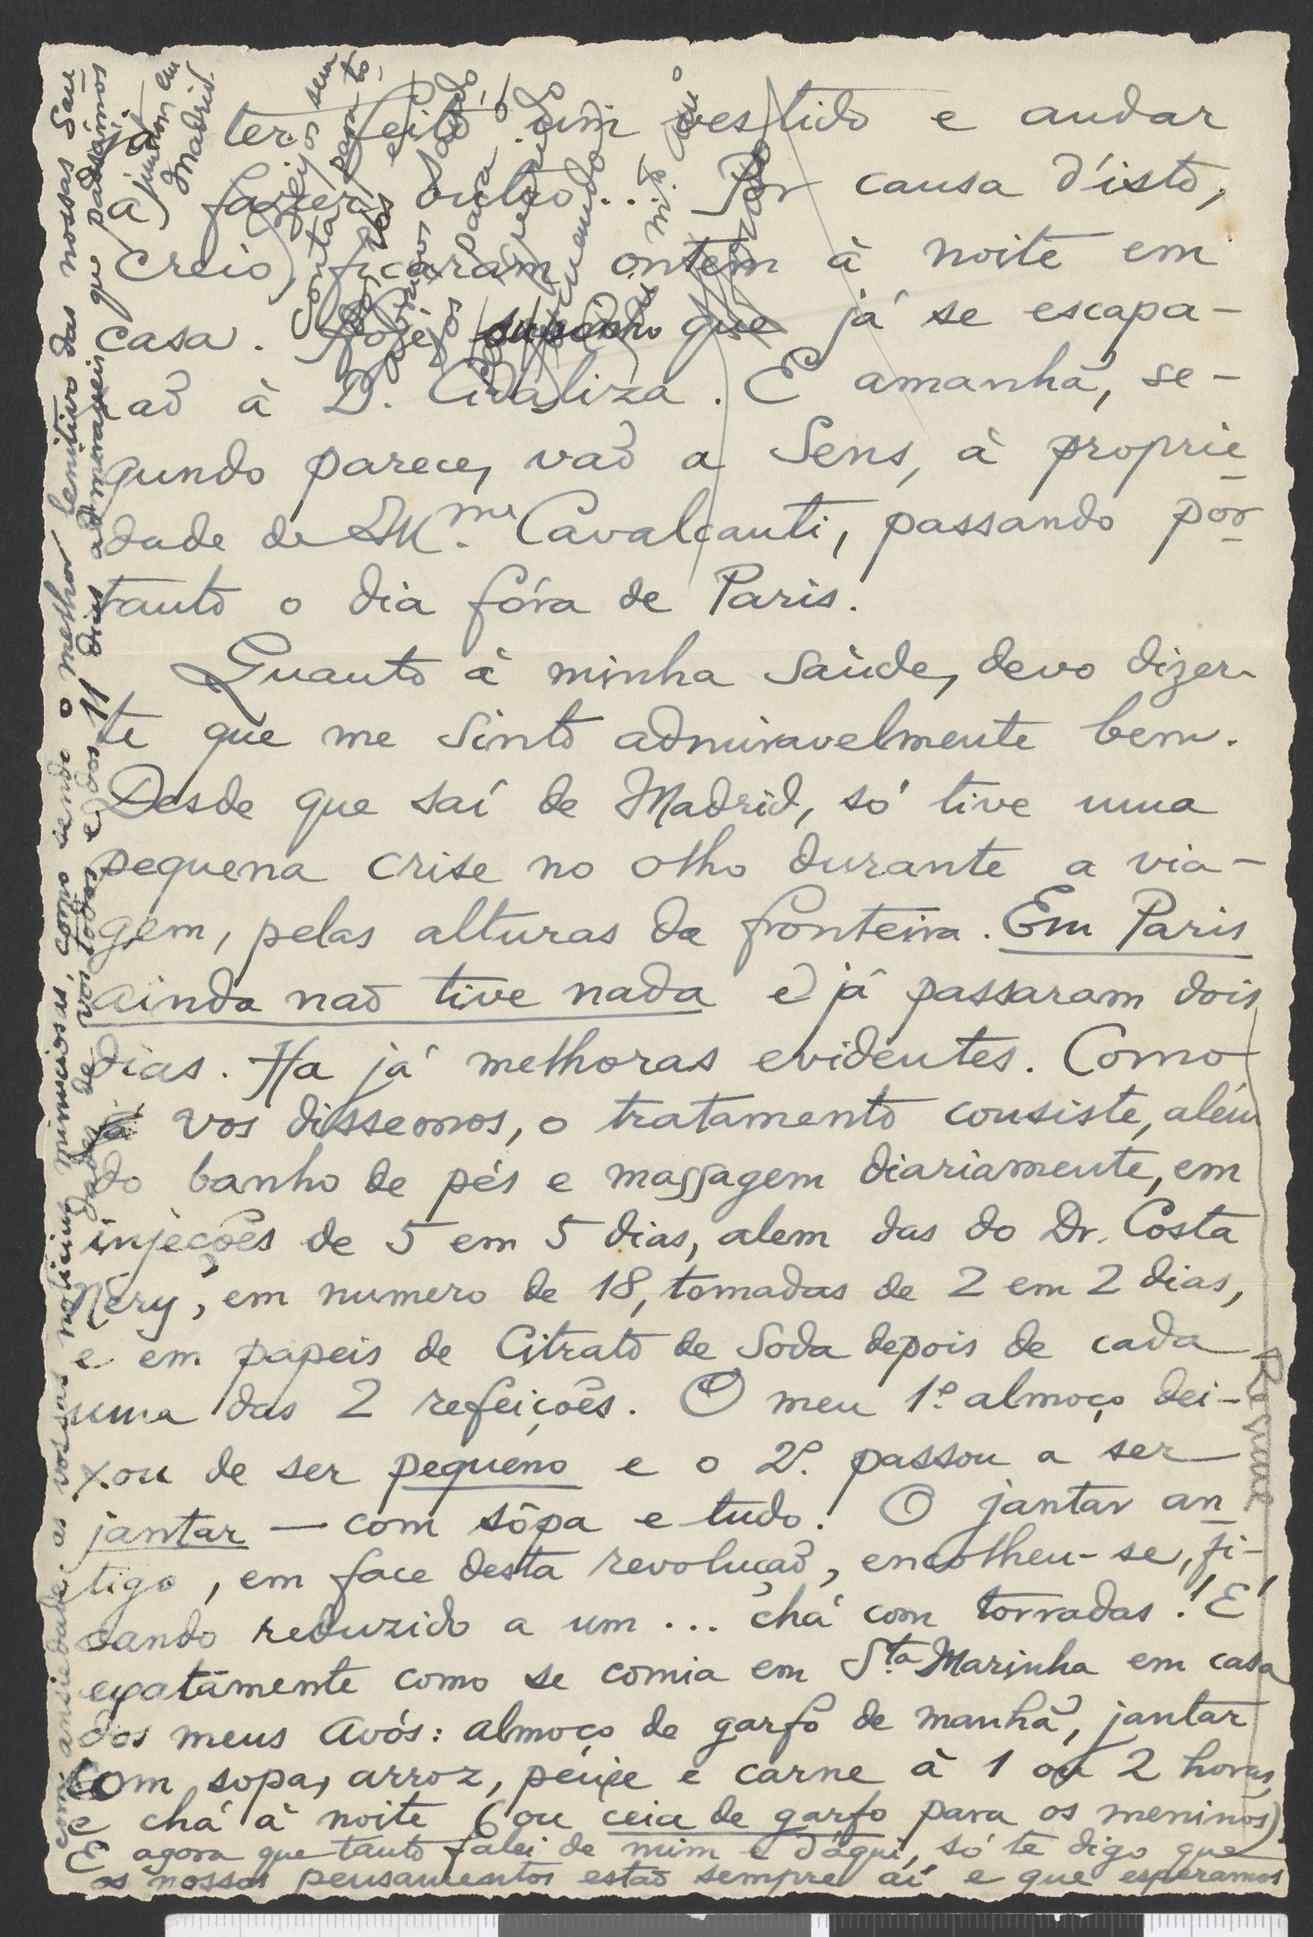 já ter feito um vestido e andar
a fazer outro... Por causa d'isto,
creio, ficaram ontem à noite em
casa. Hoje, suponho que já se escapa-
rão à D. Idaliza. E amanhã, se-
gundo parece, vão a Sens, à proprie-
dade de Mme. Cavalcanti, passando por-
tanto o dia fóra de Paris.
Quanto à minha saùde, devo dizer-
te que me sinto admiravelmente bem.
Desde que saí de Madrid, só tive uma
pequena crise no olho durante a via-
gem, pelas alturas da fronteira. Em Paris
ainda não tive nada e já passaram dois
dias. Ha já melhoras evidentes. Como
já vos dissemos, o tratamento consiste, além
do banho de pés e massagem diariamente, em
injeções de 5 em 5 dias, alem das do Dr. Costa
Nery, em numero de 18, tomadas de 2 em 2 dias,
e em papeis de Citrato de Soda depois de cada
uma das 2 refeições. O meu 1º almoço dei-
xou de ser pequeno e o 2º passou a ser
jantar — com sôpa e tudo. O jantar an-
tigo, em face desta revolução, encolheu-se, fi-
cando reduzido a um... chá com torradas! É
exatamente como se comia em Sta Marinha em casa
dos meus avós: almoço de garfo de manhã, jantar
com sopa, arroz, peixe e carne à 1 ou 2 horas,
e chá à noite (ou ceia de garfo para os meninos).
E agora que tanto falei de mim e d'aqui, só te digo que
os nossos pensamentos estão sempre aí e que esperamos
com ansiedade as vossas noticias minuciosas, como sendo o melhor lenitivo das nossas sau-
dades de vós todos e dos 11 dias admiraveis que passámos
juntos em
Madrid.